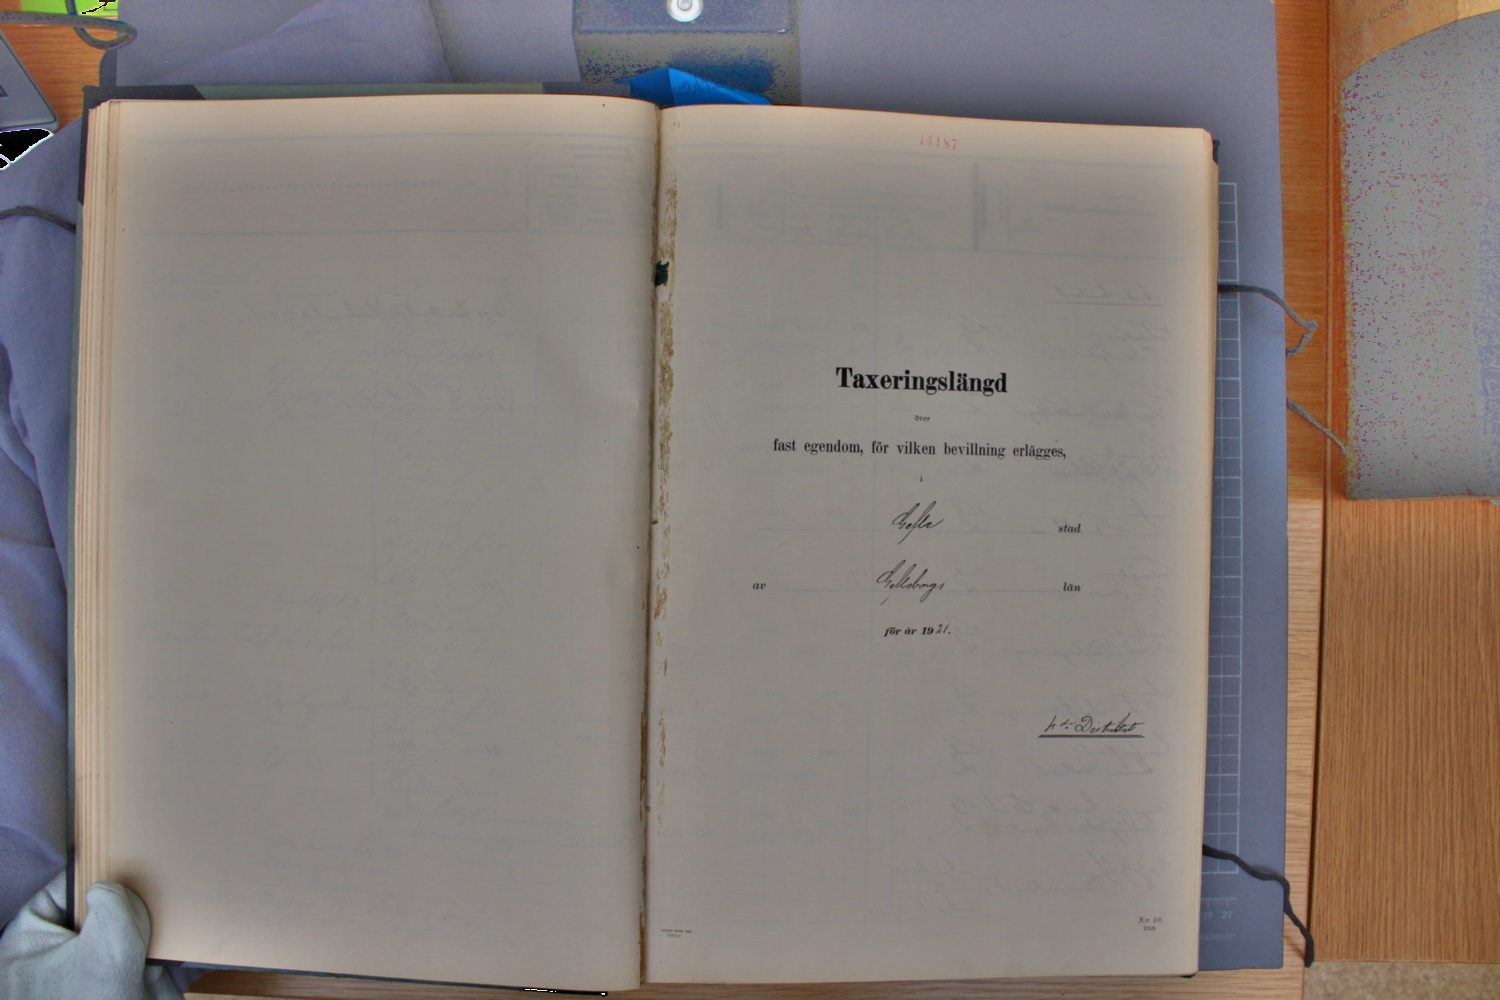 14187
Taxeringslängd
över
fast egendom, för vilken bevillning erlägges,
i
Gefle stad
av Gefleborgs län
för år 1921.
4de Distriktet
N:r 10.
1918.